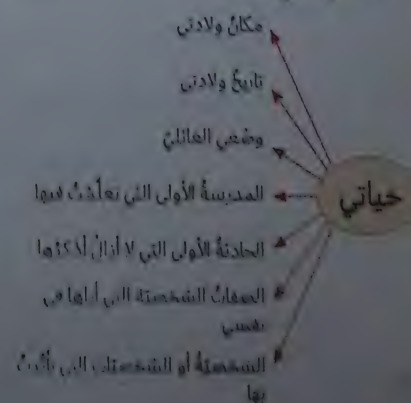 مكانُ ولادتي
تاريخُ ولادتي
وضْعي العائليّ
حياتي
المدرسةُ الأولى التي تعلّمْتُ فيها
الحادثةُ الأولى التي لا أزالُ أذكرُها
الصفاتُ الشخصيّة التي أراها في
نفسي
الشخصيّةُ أو الشخصيّات التي تأثّرتُ
بها